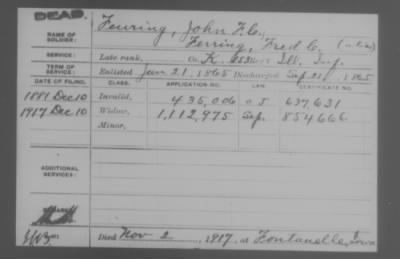 DEAD.
NAME OF SOLDIER: Feuring, John F.C.,
Ferring, Fred C. (alias)
SERVICE: Late rank, Co. K, Ill. Inf.
TERM OF SERVICE: Enlisted 21, 1865 Discharged Sep. , 1865
DATE OF FILING. CLASS. APPLICATION NO. LAW. CERTIFICATE NO.
1881 Dec 10 Invalid, 435,006 637,631
1917 Dec 10 Widow, 1,112,975 854,666
Minor,
ADDITIONAL SERVICES:
Died Nov 2, 1917, at Fontanelle, Iowa